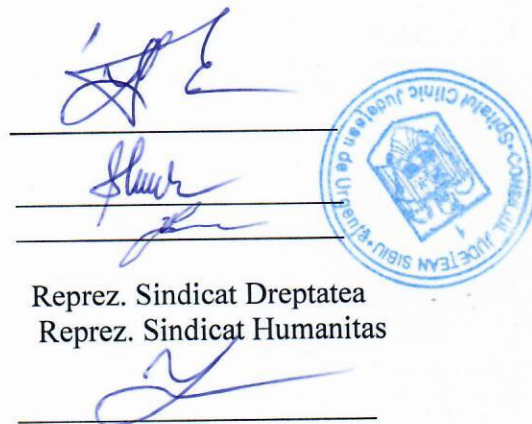 CONSILIUL JUDEȚEAN SIBIU
• Spitalul Clinic Județean de Urgență •
1
Reprez. Sindicat Dreptatea
Reprez. Sindicat Humanitas